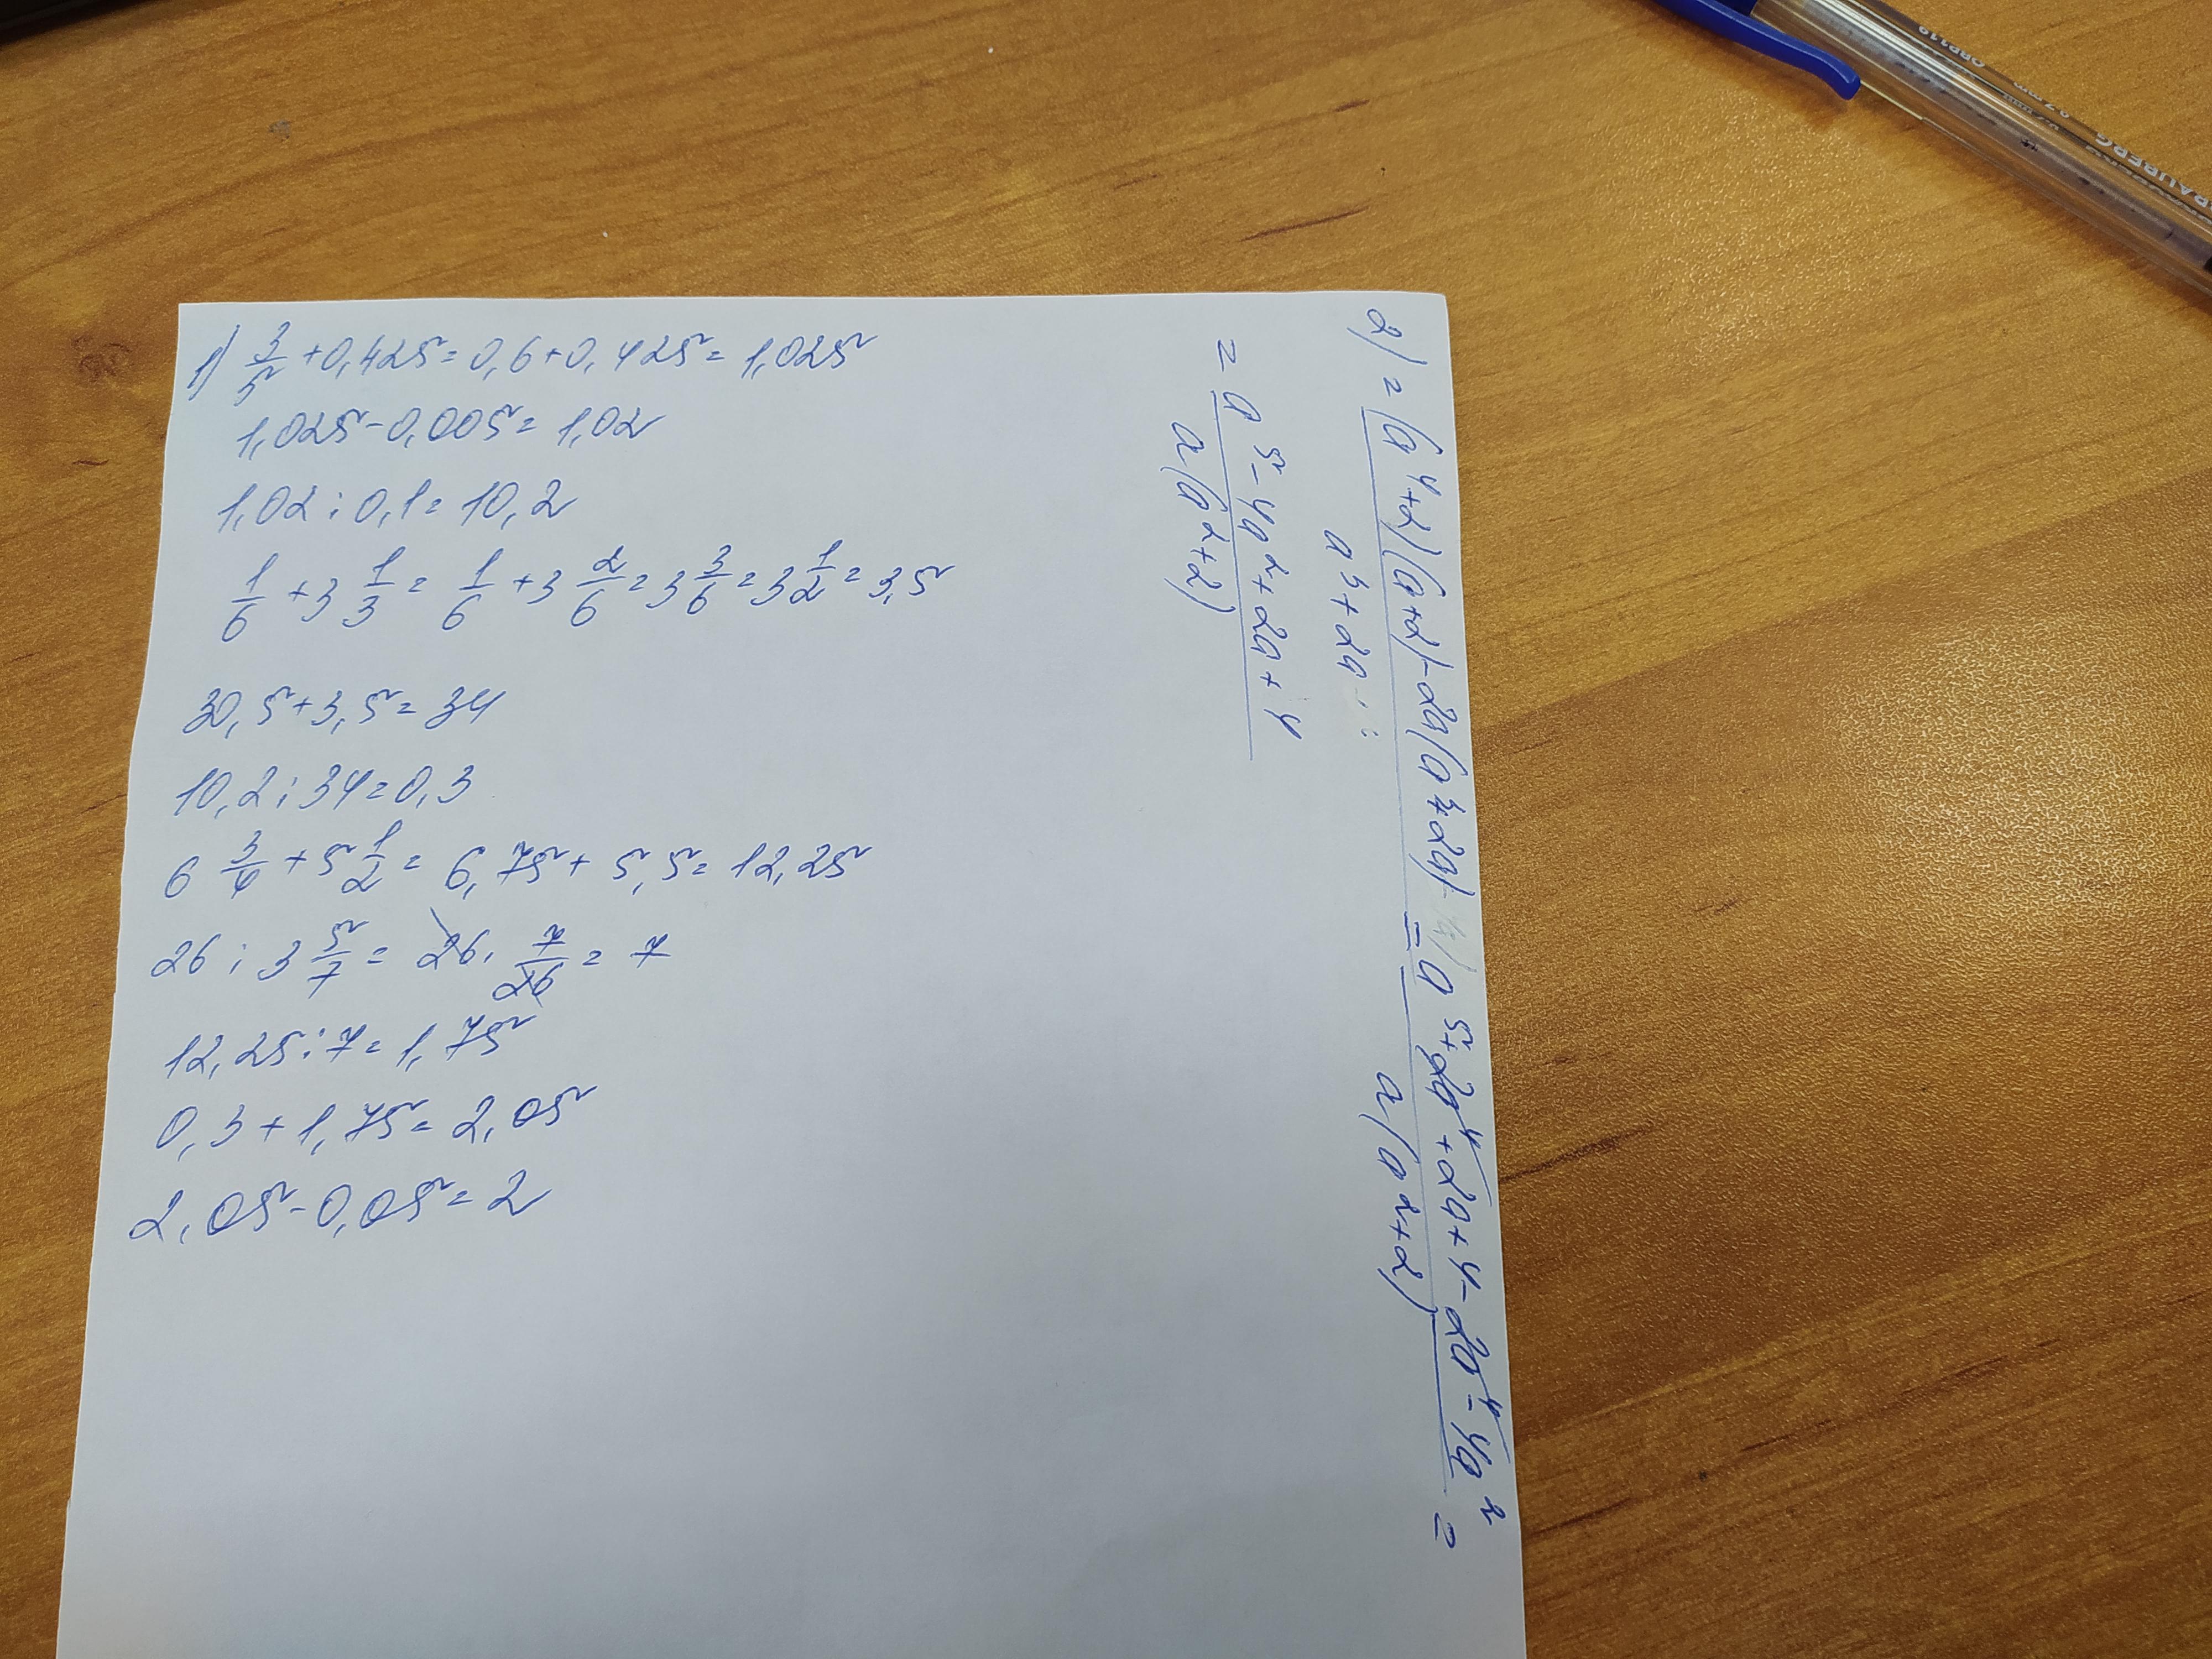 1) 3/5 + 0,425 = 0,6 + 0,425 = 1,025
1,025 - 0,005 = 1,02
1,02 : 0,1 = 10,2
1/6 + 3 1/3 = 1/6 + 3 2/6 = 3 3/6 = 3 1/2 = 3,5
30,5 + 3,5 = 34
10,2 : 34 = 0,3
6 3/4 + 5 1/2 = 6,75 + 5,5 = 12,25
26 : 3 5/7 = 26 · 7/26 = 7
12,25 : 7 = 1,75
0,3 + 1,75 = 2,05
2,05 - 0,05 = 2
2) = (a⁴+2)(a+2)-2a(a³+2a) / a³+2a = a⁵+2a⁴+2a+4-2a⁴-4a² / a(a²+2) =
= a⁵-4a²+2a+4 / a(a²+2)